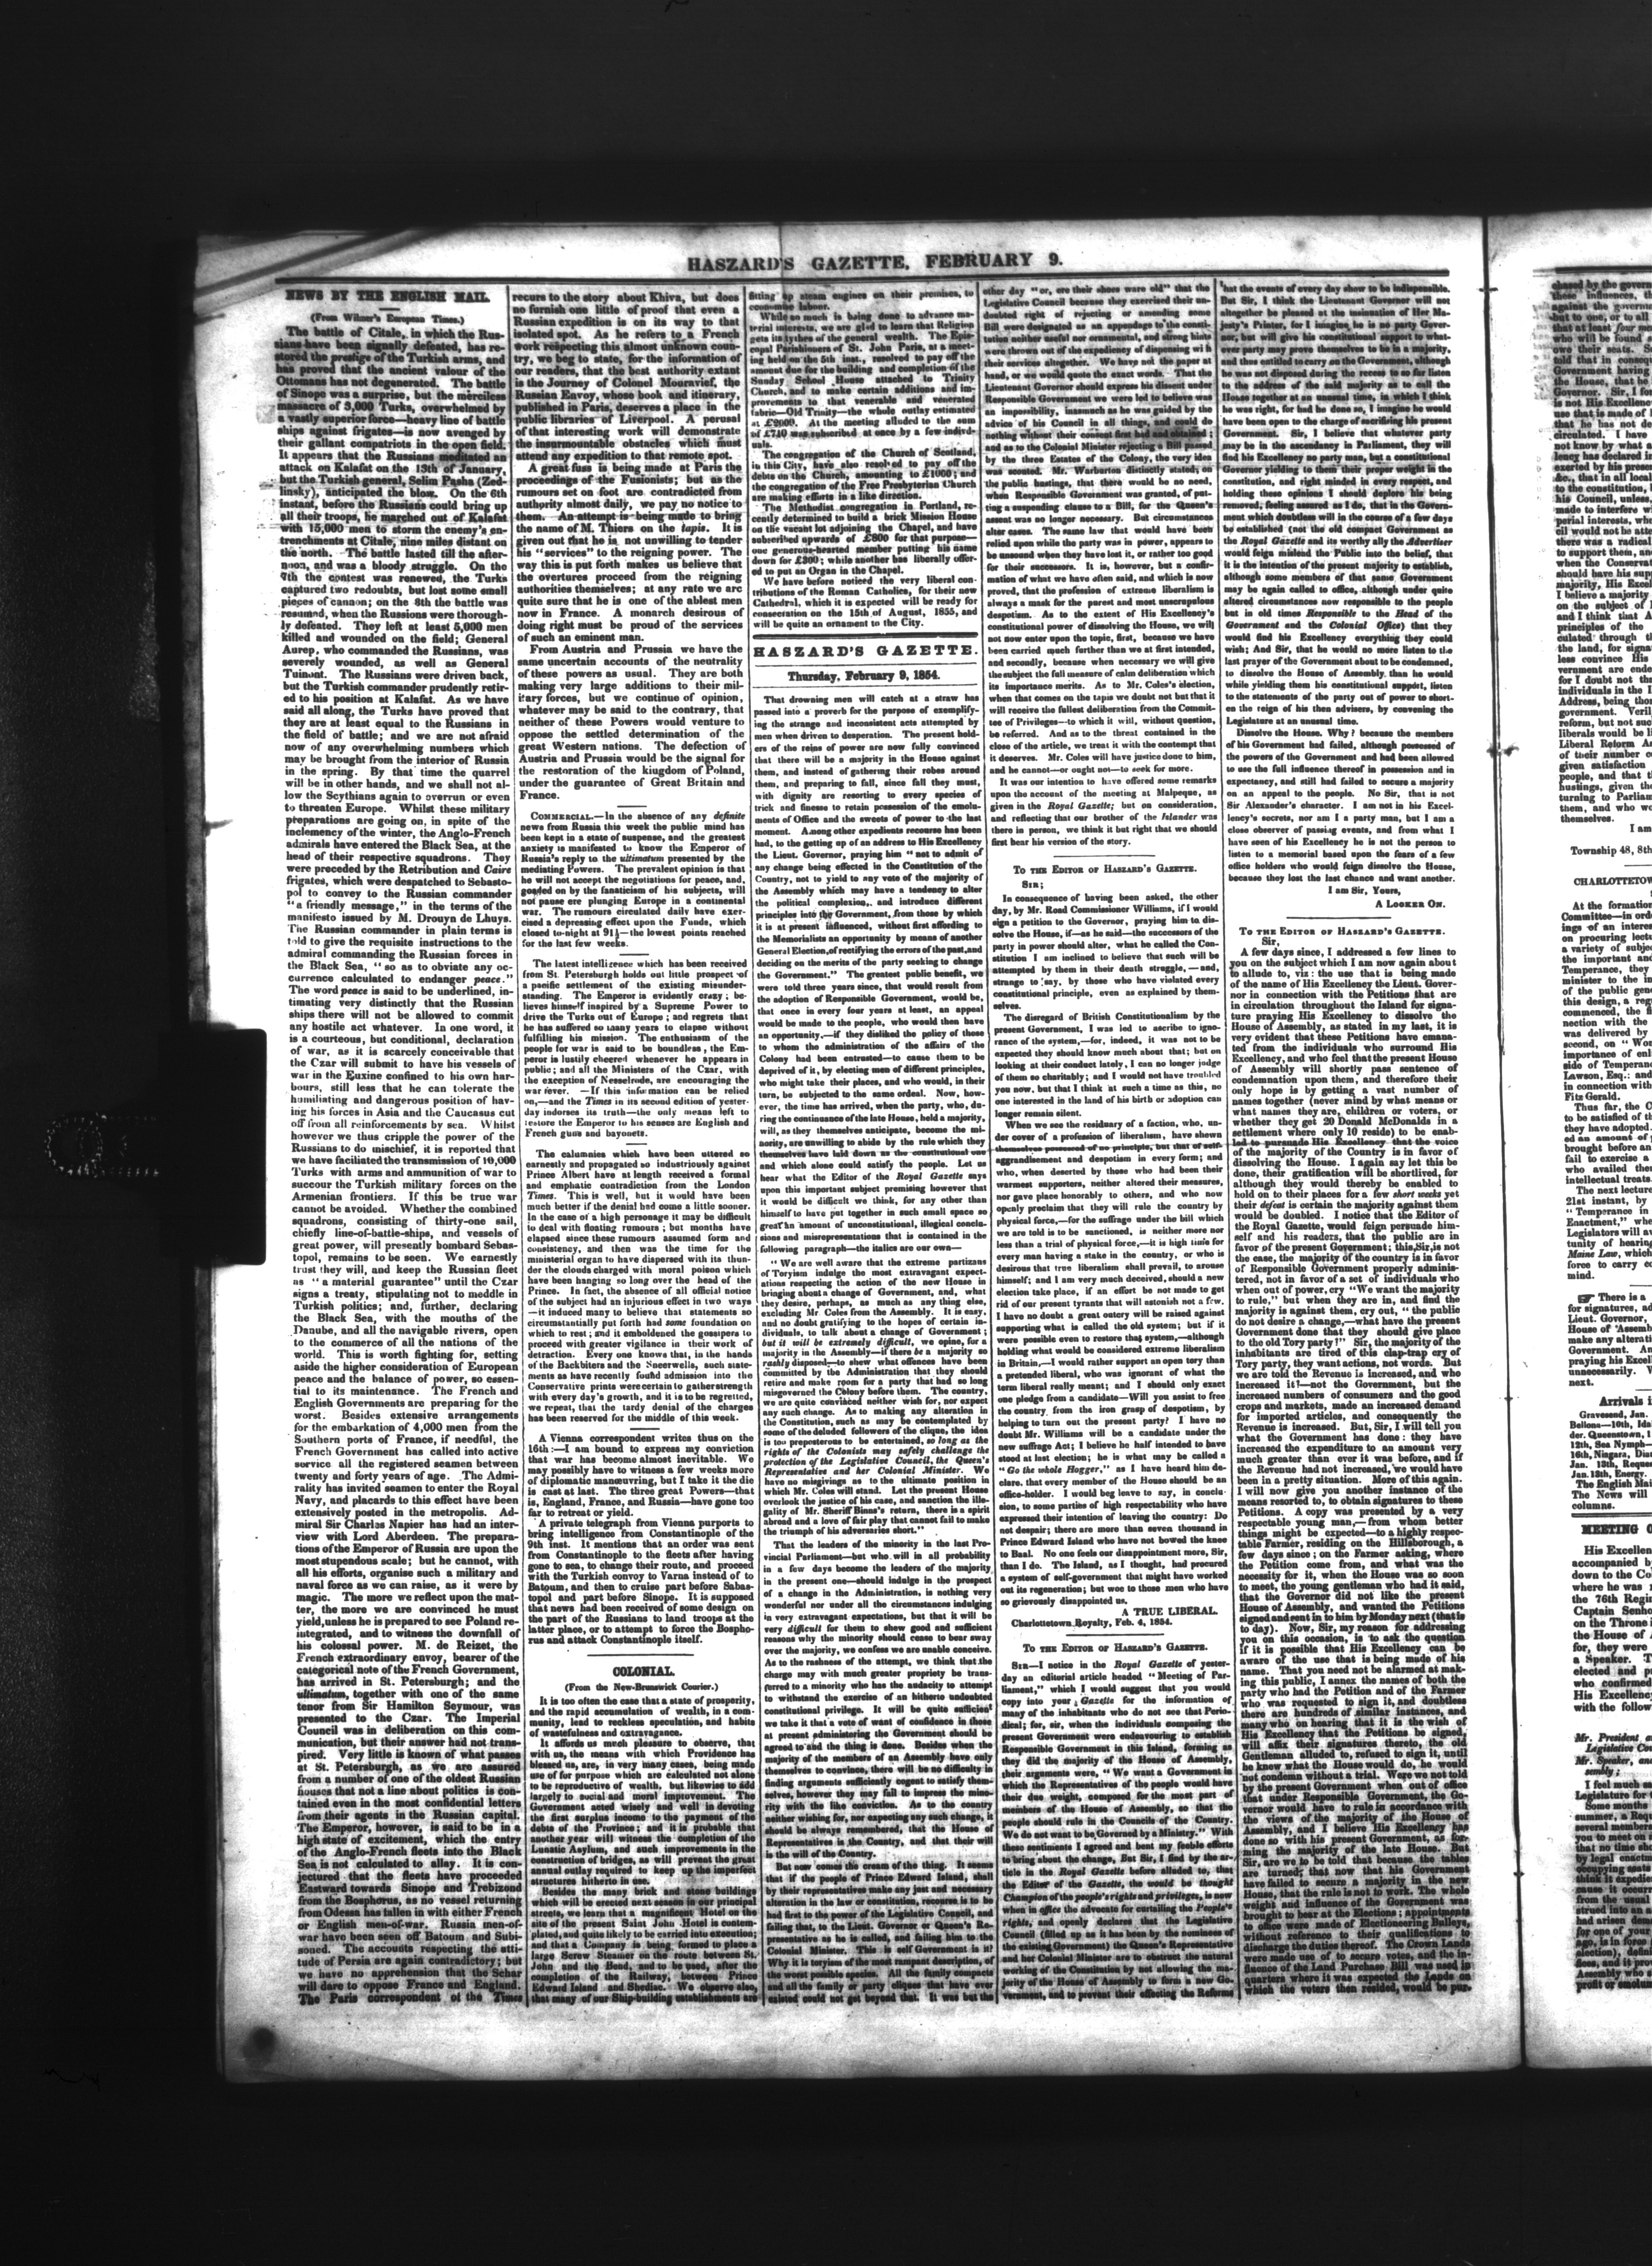 HASZARD'S GAZETTE, FEBRUARY 9.
NEWS BY THE ENGLISH MAIL.
(From Wilmer's European Times.)
The battle of Citale, in which the Rus-
sians have been signally defeated, has re-
stored the prestige of the Turkish arms, and
has proved that the ancient valour of the
Ottomans has not degenerated. The battle
of Sinope was a surprise, but the merciless
massacre of 3,000 Turks, overwhelmed by
a vastly superior force—heavy line of battle
ships against frigates—is now avenged by
their gallant compatriots in the open field.
It appears that the Russians meditated an
attack on Kalafat on the 13th of January,
but the Turkish general, Selim Pasha (Zed-
linsky), anticipated the blow. On the 6th
instant, before the Russians could bring up
all their troops, he marched out of Kalafat
with 15,000 men to storm the enemy's en-
trenchments at Citale, nine miles distant on
the north. The battle lasted till the after-
noon, and was a bloody struggle. On the
7th the contest was renewed, the Turks
captured two redoubts, but lost some small
pieces of cannon; on the 8th the battle was
resumed, when the Russians were thorough-
ly defeated. They left at least 5,000 men
killed and wounded on the field; General
Aurep, who commanded the Russians, was
severely wounded, as well as General
Tuimont. The Russians were driven back,
but the Turkish commander prudently retir-
ed to his position at Kalafat. As we have
said all along, the Turks have proved that
they are at least equal to the Russians in
the field of battle; and we are not afraid
now of any overwhelming numbers which
may be brought from the interior of Russia
in the spring. By that time the quarrel
will be in other hands, and we shall not al-
low the Scythians again to overrun or even
to threaten Europe. Whilst these military
preparations are going on, in spite of the
inclemency of the winter, the Anglo-French
admirals have entered the Black Sea, at the
head of their respective squadrons. They
were preceded by the Retribution and Caire
frigates, which were despatched to Sebasto-
pol to convey to the Russian commander
"a friendly message," in the terms of the
manifesto issued by M. Drouyn de Lhuys.
The Russian commander in plain terms is
told to give the requisite instructions to the
admiral commanding the Russian forces in
the Black Sea, "so as to obviate any oc-
currence calculated to endanger peace."
The word peace is said to be underlined, in-
timating very distinctly that the Russian
ships there will not be allowed to commit
any hostile act whatever. In one word, it
is a courteous, but conditional, declaration
of war, as it is scarcely conceivable that
the Czar will submit to have his vessels of
war in the Euxine confined to his own har-
bours, still less that he can tolerate the
humiliating and dangerous position of hav-
ing his forces in Asia and the Caucasus cut
off from all reinforcements by sea. Whilst
however we thus cripple the power of the
Russians to do mischief, it is reported that
we have faciliated the transmission of 10,000
Turks with arms and ammunition of war to
succour the Turkish military forces on the
Armenian frontiers. If this be true war
cannot be avoided. Whether the combined
squadrons, consisting of thirty-one sail,
chiefly line-of-battle-ships, and vessels of
great power, will presently bombard Sebas-
topol, remains to be seen. We earnestly
trust they will, and keep the Russian fleet
as "a material guarantee" until the Czar
signs a treaty, stipulating not to meddle in
Turkish politics; and, further, declaring
the Black Sea, with the mouths of the
Danube, and all the navigable rivers, open
to the commerce of all the nations of the
world. This is worth fighting for, setting
aside the higher consideration of European
peace and the balance of power, so essen-
tial to its maintenance. The French and
English Governments are preparing for the
worst. Besides extensive arrangements
for the embarkation of 4,000 men from the
Southern ports of France, if needful, the
French Government has called into active
service all the registered seamen between
twenty and forty years of age. The Admi-
rality has invited seamen to enter the Royal
Navy, and placards to this effect have been
extensively posted in the metropolis. Ad-
miral Sir Charles Napier has had an inter-
view with Lord Aberdeen. The prepara-
tions of the Emperor of Russia are upon the
most stupendous scale; but he cannot, with
all his efforts, organise such a military and
naval force as we can raise, as it were by
magic. The more we reflect upon the mat-
ter, the more we are convinced he must
yield, unless he is prepared to see Poland re-
integrated, and to witness the downfall of
his colossal power. M. de Reizet, the
French extraordinary envoy, bearer of the
categorical note of the French Government,
has arrived in St. Petersburgh; and the
ultimatum, together with one of the same
tenor from Sir Hamilton Seymour, was
presented to the Czar. The Imperial
Council was in deliberation on this com-
munication, but their answer had not trans-
pired. Very little is known of what passes
at St. Petersburgh, as we are assured
from a number of one of the oldest Russian
houses that not a line about politics is con-
tained even in the most confidential letters
from their agents in the Russian capital.
The Emperor, however, is said to be in a
high state of excitement, which the entry
of the Anglo-French fleets into the Black
Sea is not calculated to allay. It is con-
jectured that the fleets have proceeded
Eastward towards Sinope and Trebizond
from the Bosphorus, as no vessel returning
from Odessa has fallen in with either French
or English men-of-war. Russia men-of-
war have been seen off Batoum and Subi-
soued. The accounts respecting the atti-
tude of Persia are again contradictory; but
we have no apprehension that the Schar
will dare to oppose France and England.
The Paris correspondent of the Times
recurs to the story about Khiva, but does
no furnish one little of proof that even a
Russian expedition is on its way to that
isolated spot. As he refers to a French
work respecting this almost unknown coun-
try, we beg to state, for the information of
our readers, that the best authority extant
is the Journey of Colonel Mouravief, the
Russian Envoy, whose book and itinerary,
published in Paris, deserves a place in the
public libraries of Liverpool. A perusal
of that interesting work will demonstrate
the insurmountable obstacles which must
attend any expedition to that remote spot.
A great fuss is being made at Paris the
proceedings of the Fusionists; but as the
rumours set on foot are contradicted from
authority almost daily, we pay no notice to
them. An attempt is being made to bring
the name of M. Thiers on the tapis. It is
given out that he is not unwilling to tender
his "services" to the reigning power. The
way this is put forth makes us believe that
the overtures proceed from the reigning
authorities themselves; at any rate we are
quite sure that he is one of the ablest men
now in France. A monarch desirous of
doing right must be proud of the services
of such an eminent man.
From Austria and Prussia we have the
same uncertain accounts of the neutrality
of these powers as usual. They are both
making very large additions to their mil-
itary forces, but we continue of opinion,
whatever may be said to the contrary, that
neither of these Powers would venture to
oppose the settled determination of the
great Western nations. The defection of
Austria and Prussia would be the signal for
the restoration of the kiugdom of Poland,
under the guarantee of Great Britain and
France.
COMMERCIAL.—In the absence of any definite
news from Russia this week the public mind has
been kept in a state of suspense, and the greatest
anxiety is manifested to know the Emperor of
Russia's reply to the ultimatum presented by the
mediating Powers. The prevalent opinion is that
he will not accept the negotiations for peace, and,
goaded on by the fanaticism of his subjects, will
not pause ere plunging Europe in a continental
war. The rumours circulated daily have exer-
cised a depressing effect upon the Funds, which
closed to-night at 91½—the lowest points reached
for the last few weeks.
The latest intelligence which has been received
from St. Petersburgh holds out little prospect of
a pacific settlement of the existing misunder-
standing. The Emperor is evidently crazy; be-
lieves himself inspired by a Supreme Power to
drive the Turks out of Europe; and regrets that
he has suffered so many years to elapse without
fulfilling his mission. The enthusiasm of the
people for war is said to be boundless, the Em-
peror is lustily cheered whenever he appears in
public; and all the Ministers of the Czar, with
the exception of Nesselrode, are encouraging the
war fever. —If this information can be relied
on,—and the Times in its second edition of yester-
day indorses its truth—the only means left to
restore the Emperor to his senses are English and
French guns and bayonets.
The calumnies which have been uttered so
earnestly and propagated so industriously against
Prince Albert have at length received a formal
and emphatic contradiction from the London
Times. This is well, but it would have been
much better if the denial had come a little sooner.
In the case of a high personage it may be difficult
to deal with floating rumours; but months have
elapsed since these rumours assumed form and
consistency, and then was the time for the
ministerial organ to have dispersed with its thun-
der the clouds charged with moral poison which
have been hanging so long over the head of the
Prince. In fact, the absence of all official notice
of the subject had an injurious effect in two ways
—it induced many to believe that statements so
circumstantially put forth had some foundation on
which to rest; and it emboldened the gossipers to
proceed with greater vigilance in their work of
detraction. Every one knows that, in the hands
of the Backbiters and the Sneerwells, such state-
ments as have recently found admission into the
Conservative prints were certain to gather strength
with every day's growth, and it is to be regretted,
we repeat, that the tardy denial of the charges
has been reserved for the middle of this week.
A Vienna correspondent writes thus on the
16th:—I am bound to express my conviction
that war has become almost inevitable. We
may possibly have to witness a few weeks more
of diplomatic manœuvring, but I take it the die
is cast at last. The three great Powers—that
is, England, France, and Russia—have gone too
far to retreat or yield.
A private telegraph from Vienna purports to
bring intelligence from Constantinople of the
9th inst. It mentions that an order was sent
from Constantinople to the fleets after having
gone to sea, to change their route, and proceed
with the Turkish convoy to Varna instead of to
Batoum, and then to cruise part before Sabas-
topol and part before Sinope. It is supposed
that news had been received of some design on
the part of the Russians to land troops at the
latter place, or to attempt to force the Bospho-
rus and attack Constantinople itself.
COLONIAL.
(From the New-Brunswick Courier.)
It is too often the case that a state of prosperity,
and the rapid accumulation of wealth, in a com-
munity, lead to reckless speculation, and habits
of wastefulness and extravagance.
It affords us much pleasure to observe, that
with us, the means with which Providence has
blessed us, are, in very many cases, being made
use of for purpose which are calculated not alone
to be reproductive of wealth, but likewise to add
largely to social and moral improvement. The
Government acted wisely and well in devoting
the first surplus income to the payment of the
debts of the Province; and it is probable that
another year will witness the completion of the
Lunatic Asylum, and such improvements in the
construction of bridges, as will prevent the great
annual outlay required to keep up the imperfect
structures hitherto in use.
Besides the many brick and stone buildings
which will be erected next season in our principal
streets, we learn that a magnificent Hotel on the
site of the present Saint John Hotel is contem-
plated, and quite likely to be carried into execution;
and that a Company is being formed to place a
large Screw Steamer on the route between St.
John and the Bend, and to be used, after the
completion of the Railway, between Prince
Edward Island and Shediac. We observe also,
that many of our Ship-building establishments are
fitting up steam engines on their premises, to
economise labour.
While so much is being done to advance ma-
terial interests, we are glad to learn that Religion
gets its tythes of the general wealth. The Epis-
copal Parishioners of St. John Paris, at a meet-
ing held on the 5th inst., resolved to pay off the
amount due for the building and completion of the
Sunday School House attached to Trinity
Church, and to make certain additions and im-
provements to that venerable and venerated
fabric—Old Trinity—the whole outlay estimated
at £2000. At the meeting alluded to the sum
of £710 was subscribed at once by a few individ-
uals.
The congregation of the Church of Scotland,
in this City, have also resolved to pay off the
debts on the Church, amounting to £1000; and
the congregation of the Free Presbyterian Church
are making efforts in a like direction.
The Methodist congregation in Portland, re-
cently determined to build a brick Mission House
on the vacant lot adjoining the Chapel, and have
subscribed upwards of £800 for that purpose—
one generous-hearted member putting his name
down for £300; while another has liberally offer-
ed to put an Organ in the Chapel.
We have before noticed the very liberal con-
tributions of the Roman Catholics, for their new
Cathedral, which it is expected will be ready for
consecration on the 15th of August, 1855, and
will be quite an ornament to the City.
HASZARD'S GAZETTE.
Thursday, February 9, 1854.
That drowning men will catch at a straw has
passed into a proverb for the purpose of exemplify-
ing the strange and inconsistent acts attempted by
men when driven to desperation. The present hold-
ers of the reins of power are now fully convinced
that there will be a majority in the House against
them, and instead of gathering their robes around
them, and preparing to fall, since fall they must,
with dignity are resorting to every species of
trick and finesse to retain possession of the emolu-
ments of Office and the sweets of power to the last
moment. Among other expedients recourse has been
had, to the getting up of an address to His Excellency
the Lieut. Governor, praying him "not to admit of
any change being effected in the Constitution of the
Country, not to yield to any vote of the majority of
the Assembly which may have a tendency to alter
the political complexion, and introduce different
principles into the Government, from those by which
it is at present influenced, without first affording to
the Memorialists an opportunity by means of another
General Election, of rectifying the errors of the past, and
deciding on the merits of the party seeking to change
the Government." The greatest public benefit, we
were told three years since, that would result from
the adoption of Responsible Government, would be,
that once in every four years at least, an appeal
would be made to the people, who would then have
an opportunity,—if they disliked the policy of those
to whom the administration of the affairs of the
Colony had been entrusted—to cause them to be
deprived of it, by electing men of different principles,
who might take their places, and who would, in their
turn, be subjected to the same ordeal. Now, how-
ever, the time has arrived, when the party, who, du-
ring the continuance of the late House, held a majority,
will, as they themselves anticipate, become the mi-
nority, are unwilling to abide by the rule which they
themselves have laid down as the constitutional one
and which alone could satisfy the people. Let us
hear what the Editor of the Royal Gazette says
upon this important subject premising however that
it would be difficult we think, for any other than
himself to have put together in such small space so
great an amount of unconstitutional, illogical conclu-
sions and misrepresentations that is contained in the
following paragraph—the italics are our own—
"We are well aware that the extreme partizans
of Toryism indulge the most extravagant expect-
ations respecting the action of the new House in
bringing about a change of Government, and, what
they desire, perhaps, as much as any thing else,
excluding Mr. Coles from the Assembly. It is easy,
and no doubt gratifying to the hopes of certain in-
dividuals, to talk about a change of Government;
but it will be extremely difficult, we opine, for a
majority in the Assembly—if there be a majority so
rashly disposed,—to shew what offences have been
committed by the Administration that they should
retire and make room for a party that had so long
misgoverned the Colony before them. The country,
we are quite convinced neither wish for, nor expect
any such change. As to making any alteration in
the Constitution, such as may be contemplated by
some of the deluded followers of the clique, the idea
is too preposterous to be entertained, so long as the
rights of the Colonists may safely challenge the
protection of the Legislative Council, the Queen's
Representative and her Colonial Minister. We
have no misgivings as to the ultimate position in
which Mr. Coles will stand. Let the present House
overlook the justice of his case, and sanction the ille-
gality of Mr. Sheriff Binns's return, there is a spirit
abroad and a love of fair play that cannot fail to make
the triumph of his adversaries short."
That the leaders of the minority in the last Pro-
vincial Parliament—but who will in all probability
in a few days become the leaders of the majority
in the present one—should indulge in the prospect
of a change in the Administration, is nothing very
wonderful nor under all the circumstances indulging
in very extravagant expectations, but that it will be
very difficult for them to shew good and sufficient
reasons why the minority should cease to bear sway
over the majority, we confess we are unable conceive.
As to the rashness of the attempt, we think that the
charge may with much greater propriety be trans-
ferred to a minority who has the audacity to attempt
to withstand the exercise of an hitherto undoubted
constitutional privilege. It will be quite sufficient
we take it that a vote of want of confidence in those
at present administering the Government should be
agreed to and the thing is done. Besides when the
majority of the members of an Assembly have only
themselves to convince, there will be no difficulty in
finding arguments sufficiently cogent to satisfy them-
selves, however they may fail to impress the mino-
rity with the like conviction. As to the country
neither wishing for, nor expecting any such change, it
should be always remembered, that the House of
Representatives is the Country, and that their will
is the will of the Country.
But now comes the cream of the thing. It seems
that if the people of Prince Edward Island, shall
by their representatives make any just and necessary
alteration in the law or constitution, recourse is to be
had first to the power of the Legislative Council, and
failing that, to the Lieut. Governor or Queen's Re-
presentative as he is called, and failing him to the
Colonial Minister. This is self Government is it?
Why it is toryism of the most rampant description, of
the worst possible species. All the family compacts
and all the family or party cliques that have ever
existed could not get beyond that. It was but the
other day "or, ere their shoes were old" that the
Legislative Council because they exercised their un-
doubted right of rejecting or amending some
Bill were designated as an appendage to the consti-
tution neither useful nor ornamental, and strong hints
were thrown out of the expediency of dispensing with
their services altogether. We have not the paper at
hand, or we would quote the exact words. That the
Lieutenant Governor should express his dissent under
Responsible Government we were led to believe was
an impossibility, inasmuch as he was guided by the
advice of his Council in all things, and could do
nothing without their consent first had and obtained;
and as to the Colonial Minister rejecting a Bill passed
by the three Estates of the Colony, the very idea
was scouted. Mr. Warburton distinctly stated, on
the public hustings, that there would be no need,
when Responsible Government was granted, of put-
ting a suspending clause to a Bill, for the Queen's
assent was no longer necessary. But circumstances
alter cases. The same law that would have been
relied upon while the party was in power, appears to
be unsound when they have lost it, or rather too good
for their successors. It is, however, but a confir-
mation of what we have often said, and which is now
proved, that the profession of extreme liberalism is
always a mask for the purest and most unscrupulous
despotism. As to the extent of His Excellency's
constitutional power of dissolving the House, we will
not now enter upon the topic, first, because we have
been carried much further than we at first intended,
and secondly, because when necessary we will give
the subject the full measure of calm deliberation which
its importance merits. As to Mr. Coles's election,
when that comes on the tapis we doubt not but that it
will receive the fullest deliberation from the Commit-
tee of Privileges—to which it will, without question,
be referred. And as to the threat contained in the
close of the article, we treat it with the contempt that
it deserves. Mr. Coles will have justice done to him,
and he cannot—or ought not—to seek for more.
It was our intention to have offered some remarks
upon the account of the meeting at Malpeque, as
given in the Royal Gazette; but on consideration,
and reflecting that our brother of the Islander was
there in person, we think it but right that we should
first hear his version of the story.
TO THE EDITOR OF HASZARD'S GAZETTE.
SIR;
In consequence of having been asked, the other
day, by Mr. Road Commissioner Williams, if I would
sign a petition to the Governor, praying him to dis-
solve the House, if—as he said—the successors of the
party in power should alter, what he called the Con-
stitution I am inclined to believe that such will be
attempted by them in their death struggle,—and,
strange to say, by those who have violated every
constitutional principle, even as explained by them-
selves.
The disregard of British Constitutionalism by the
present Government, I was led to ascribe to igno-
rance of the system,—for, indeed, it was not to be
expected they should know much about that; but on
looking at their conduct lately, I can no longer judge
of them so charitably; and I would not have troubled
you now, but that I think at such a time as this, no
one interested in the land of his birth or adoption can
longer remain silent.
When we see the residuary of a faction, who, un-
der cover of a profession of liberalism, have shewn
themselves possessed of no principle, but that of self-
aggrandisement and despotism in every form; and
who, when deserted by those who had been their
warmest supporters, neither altered their measures,
nor gave place honorably to others, and who now
openly proclaim that they will rule the country by
physical force,—for the suffrage under the bill which
we are told is to be sanctioned, is neither more nor
less than a trial of physical force,—it is high time for
every man having a stake in the country, or who is
desirous that true liberalism shall prevail, to arouse
himself; and I am very much deceived, should a new
election take place, if an effort be not made to get
rid of our present tyrants that will astonish not a few.
I have no doubt a great outcry will be raised against
supporting what is called the old system; but if it
were possible even to restore that system,—although
holding what would be considered extreme liberalism
in Britain,—I would rather support an open tory than
a pretended liberal, who was ignorant of what the
term liberal really meant; and I should only exact
one pledge from a candidate—Will you assist to free
the country from the iron grasp of despotism, by
helping to turn out the present party? I have no
doubt Mr. Williams will be a candidate under the
new suffrage Act; I believe he half intended to have
stood at last election; he is what may be called a
"Go the whole Hogger," as I have heard him de-
clare, that every member of the House should be an
office-holder. I would beg leave to say, in conclu-
sion, to some parties of high respectability who have
expressed their intention of leaving the country: Do
not despair; there are more than seven thousand in
Prince Edward Island who have not bowed the knee
to Baal. No one feels our disappointment more, Sir,
than I do. The Island, as I thought, had procured
a system of self-government that might have worked
out its regeneration; but woe to those men who have
so grievously disappointed us.
A TRUE LIBERAL.
Charlottetown Royalty, Feb. 4, 1854.
TO THE EDITOR OF HASZARD'S GAZETTE.
SIR—I notice in the Royal Gazette of yester-
day an editorial article headed "Meeting of Par-
liament," which I would suggest that you would
copy into your Gazette for the information of
many of the inhabitants who do not see that Perio-
dical; for, sir, when the individuals composing the
present Government were endeavouring to establish
Responsible Government in this Island, forming as
they did the majority of the House of Assembly,
their arguments were, "We want a Government in
which the Representatives of the people would have
their due weight, composed for the most part of
members of the House of Assembly, so that the
people should rule in the Councils of the Country.
We do not want to be Governed by a Ministry." With
these sentiments I agreed and bent my feeble efforts
to bring about the change, But Sir, I find by the ar-
ticle in the Royal Gazette before alluded to, that
the Editor of the Gazette, the would be thought
Champion of the people's rights and privileges, is now
when in office the advocate for curtailing the People's
rights, and openly declares that the Legislative
Council (filled up as it has been by the nominees of
the existing Government) the Queen's Representative
and her Colonial Minister are to obstruct the natural
working of the Constitution by not allowing the ma-
jority of the House of Assembly to form a new Go-
vernment, and to prevent their effecting the Reforms
that the events of every day show to be indispensible.
But Sir, I think the Lieutenant Governor will not
altogether be pleased at the insinuation of Her Ma-
jesty's Printer, for I imagine he is no party Gover-
nor, but will give his constitutional support to what-
ever party may prove themselves to be in a majority,
and thus entitled to carry on the Government, although
he was not disposed during the recess to so far listen
to the address of the said majority as to call the
House together at an unusual time, in which I think
he was right, for had he done so, I imagine he would
have been open to the charge of sacrificing his present
Government. Sir, I believe that whatever party
may be in the ascendancy in Parliament, they will
find his Excellency no party man, but a constitutional
Governor yielding to them their proper weight in the
constitution, and right minded in every respect, and
holding these opinions I should deplore his being
removed, feeling assured as I do, that in the Govern-
ment which doubtless will in the course of a few days
be established (not the old compact Government as
the Royal Gazette and its worthy ally the Advertiser
would feign mislead the Public into the belief, that
it is the intention of the present majority to establish,
although some members of that same Government
may be again called to office, although under quite
altered circumstances now responsible to the people
but in old times Responsible to the Head of the
Government and the Colonial Office) that they
would find his Excellency everything they could
wish; And Sir, that he would no more listen to the
last prayer of the Government about to be condemned,
to dissolve the House of Assembly, than he would
while yielding them his constitutional support, listen
to the statements of the party out of power to short-
en the reign of his then advisers, by convening the
Legislature at an unusual time.
Dissolve the House. Why? because the members
of his Government had failed, although possessed of
the powers of the Government and had been allowed
to use the full influence thereof in possession and in
expectancy, and still had failed to secure a majority
on an appeal to the people. No Sir, that is not
Sir Alexander's character. I am not in his Excel-
lency's secrets, nor am I a party man, but I am a
close observer of passing events, and from what I
have seen of his Excellency he is not the person to
listen to a memorial based upon the fears of a few
office holders who would feign dissolve the House,
because they lost the last chance and want another.
I am Sir, Yours,
A LOOKER ON.
TO THE EDITOR OF HASZARD'S GAZETTE.
Sir,
A few days since, I addressed a few lines to
you on the subject which I am now again about
to allude to, viz: the use that is being made
of the name of His Excellency the Lieut. Gover-
nor in connection with the Petitions that are
in circulation throughout the Island for signa-
ture praying His Excellency to dissolve the
House of Assembly, as stated in my last, it is
very evident that these Petitions have emana-
ted from the individuals who surround His
Excellency, and who feel that the present House
of Assembly will shortly pass sentence of
condemnation upon them, and therefore their
only hope is by getting a vast number of
names together (never mind by what means or
what names they are, children or voters, or
whether they get 20 Donald McDonalds in a
settlement where only 10 reside) to be enab-
led to persuade His Excellency that the voice
of the majority of the Country is in favor of
dissolving the House. I again say let this be
done, their gratification will be shortlived, for
although they would thereby be enabled to
hold on to their places for a few short weeks yet
their defeat is certain the majority against them
would be doubled. I notice that the Editor of
the Royal Gazette, would feign persuade him-
self and his readers, that the public are in
favor of the present Government; this, Sir, is not
the case, the majority of the country is in favor
of Responsible Government properly adminis-
tered, not in favor of a set of individuals who
when out of power, cry "We want the majority
to rule," but when they are in, and find the
majority is against them, cry out, "the public
do not desire a change,—what have the present
Government done that they should give place
to the old Tory party!" Sir, the majority of the
inhabitants are tired of this clap-trap cry of
Tory party, they want actions, not words. But
we are told the Revenue is increased, and who
increased it?—not the Government, but the
increased numbers of consumers and the good
crops and markets, made an increased demand
for imported articles, and consequently the
Revenue is increased. But, Sir, I will tell you
what the Government has done: they have
increased the expenditure to an amount very
much greater than ever it was before, and if
the Revenue had not increased, we would have
been in a pretty situation. More of this again.
I will now give you another instance of the
means resorted to, to obtain signatures to these
Petitions. A copy was presented by a very
respectable young man,—from whom better
things might be expected—to a highly respec-
table Farmer, residing on the Hillsborough, a
few days since; on the Farmer asking, where
the Petition come from, and what was the
necessity for it, when the House was so soon
to meet, the young gentleman who had it said,
that the Governor did not like the present
House of Assembly, and wanted the Petitions
signed and sent in to him by Monday next (that is
to day). Now, Sir, my reason for addressing
you on this occasion, is to ask the question
if it is possible that His Excellency can be
aware of the use that is being made of his
name. That you need not be alarmed at mak-
ing this public, I annex the names of both the
party who had the Petition and of the Farmer
who was requested to sign it, and doubtless
there are hundreds of similar instances, and
many who on hearing that it is the wish of
His Excellency that the Petitions be signed,
will affix their signatures thereto, the old
Gentleman alluded to, refused to sign it, until
he knew what the House would do, he would
not condemn without a trial. Were we not told
by the present Government when out of office
that under Responsible Government, the Go-
vernor would have to rule in accordance with
the views of the majority of the House of
Assembly, and I believe His Excellency has
done so with his present Government, as for-
ming the majority of the late House. But
Sir, are we to be told that because the tables
are turned; that now that his Government
have failed to secure a majority in the new
House, that the rule is not to work. The whole
weight and influence of the Government was
brought to bear at the Elections; appointments
to office were made of Electioneering Bulleys,
without reference to their qualifications to
discharge the duties thereof. The Crown Lands
were made use of to secure votes, and the in-
fluence of the Land Purchase Bill was used in
quarters where it was expected the Lands on
which the voters then resided, would be pur-